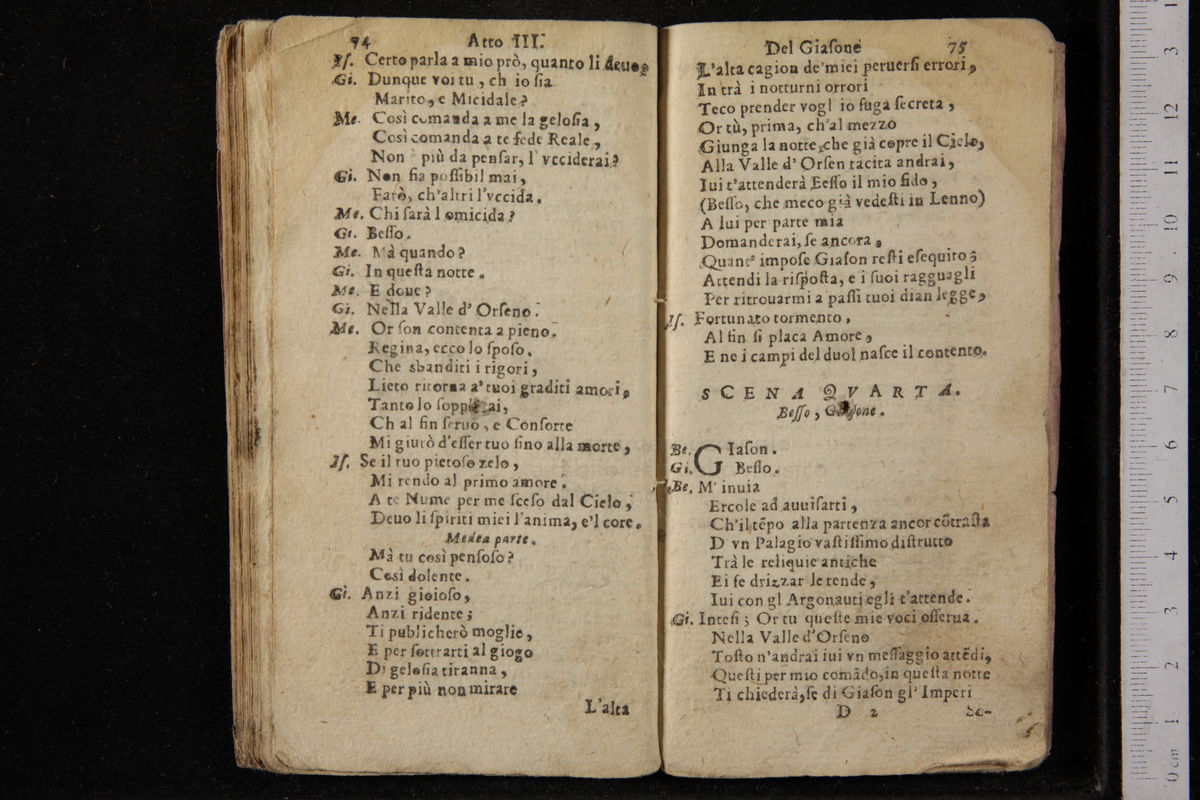 74 Atto III.
Is. Certo parla a mio prò, quanto li deuo,
Gi. Dunque voi tu, ch io ſia
Marito, e Micidale?
Me. Così comanda a me la geloſia,
Così comanda a te fede Reale,
Non è più da penſar, l' vcciderai?
Gi. Non fia poſſibil mai,
Farò, ch'altri l'vccida.
Me. Chi ſarà l omicida?
Gi. Beſſo.
Me. Mà quando?
Gi. In queſta notte.
Me. E doue?
Gi. Nella Valle d' Orſeno.
Me. Or ſon contenta a pieno.
Regina, ecco lo ſpoſo.
Che sbanditi i rigori,
Lieto ritorna a' tuoi graditi amori,
Tanto lo ai,
Ch al fin ſeruo, e Conſorte
Mi giurò d'eſſer tuo fino alla morte,
Iſ. Se il tuo pietoſo zelo,
Mi rendo al primo amore.
A te Nume per me ſceſo dal Cielo,
Deuo li ſpiriti miei l'anima, e'l core.
Medea parte.
Mà tu così penſoſo?
Così dolente.
Gi. Anzi gioioſo,
Anzi ridente;
Ti publicherò moglie,
E per ſottrarti al giogo
Di geloſia tiranna,
E per più non mirare
L'alta
Del Giaſone 75
L'alta cagion de'miei peruerſi errori,
In trà i notturni orrori
Teco prender vogl io fuga ſecreta,
Or tù, prima, ch'al mezzo
Giunga la notte, che già copre il Cielo,
Alla Valle d' Orſen tacita andrai,
Iui t'attenderà Beſſo il mio fido,
(Beſſo, che meco già vedeſti in Lenno)
A lui per parte mia
Domanderai, ſe ancora,
Quant' impoſe Giaſon reſti eſequito;
Attendi la riſpoſta, e i ſuoi ragguagli
Per ritrouarmi a paſſi tuoi dian legge,
Iſ. Fortunato tormento,
Al fin ſi placa Amore,
E ne i campi del duol naſce il contento.
SCENA QVARTA.
Beſſo, Giaſone.
Be. Giaſon.
Gi. Beſſo.
Be. M' inuia
Ercole ad auuiſarti,
Ch'il tẽpo alla partenza ancor cõtraſta
D vn Palagio vaſtiſſimo diſtrutto
Trà le reliquie antiche
Ei fe drizzar le tende,
Iui con gl Argonauti egli t'attende.
Gi. Inteſi; Or tu queſte mie voci oſſerua.
Nella Valle d'Orſeno
Toſto n'andrai iui vn meſſaggio attẽdi,
Queſti per mio comãdo, in queſta notte
Ti chiederà, ſe di Giaſon gl' Imperi
D 2 Se-